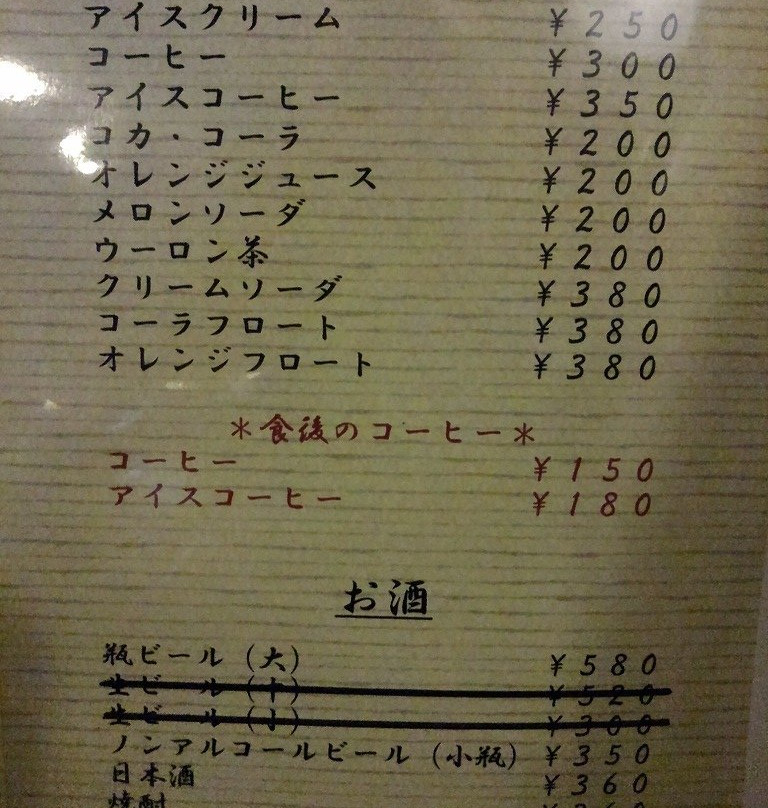 アイスクリーム ¥250
コーヒー ¥300
アイスコーヒー ¥350
コカ・コーラ ¥200
オレンジジュース ¥200
メロンソーダ ¥200
ウーロン茶 ¥200
クリームソーダ ¥380
コーラフロート ¥380
オレンジフロート ¥380
*食後のコーヒー*
コーヒー ¥150
アイスコーヒー ¥180
お酒
瓶ビール(大) ¥580
生ビール ¥520
生ビール(小) ¥300
ノンアルコールビール(小瓶) ¥350
日本酒 ¥360
焼酎